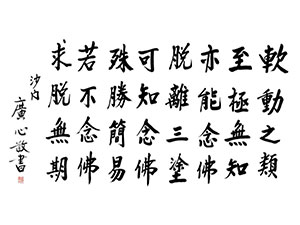 軟動之類
至極無知
亦能念佛
脫離三塗
可知念佛
殊勝簡易
若不念佛
求脫無期
沙內
廣心敬書